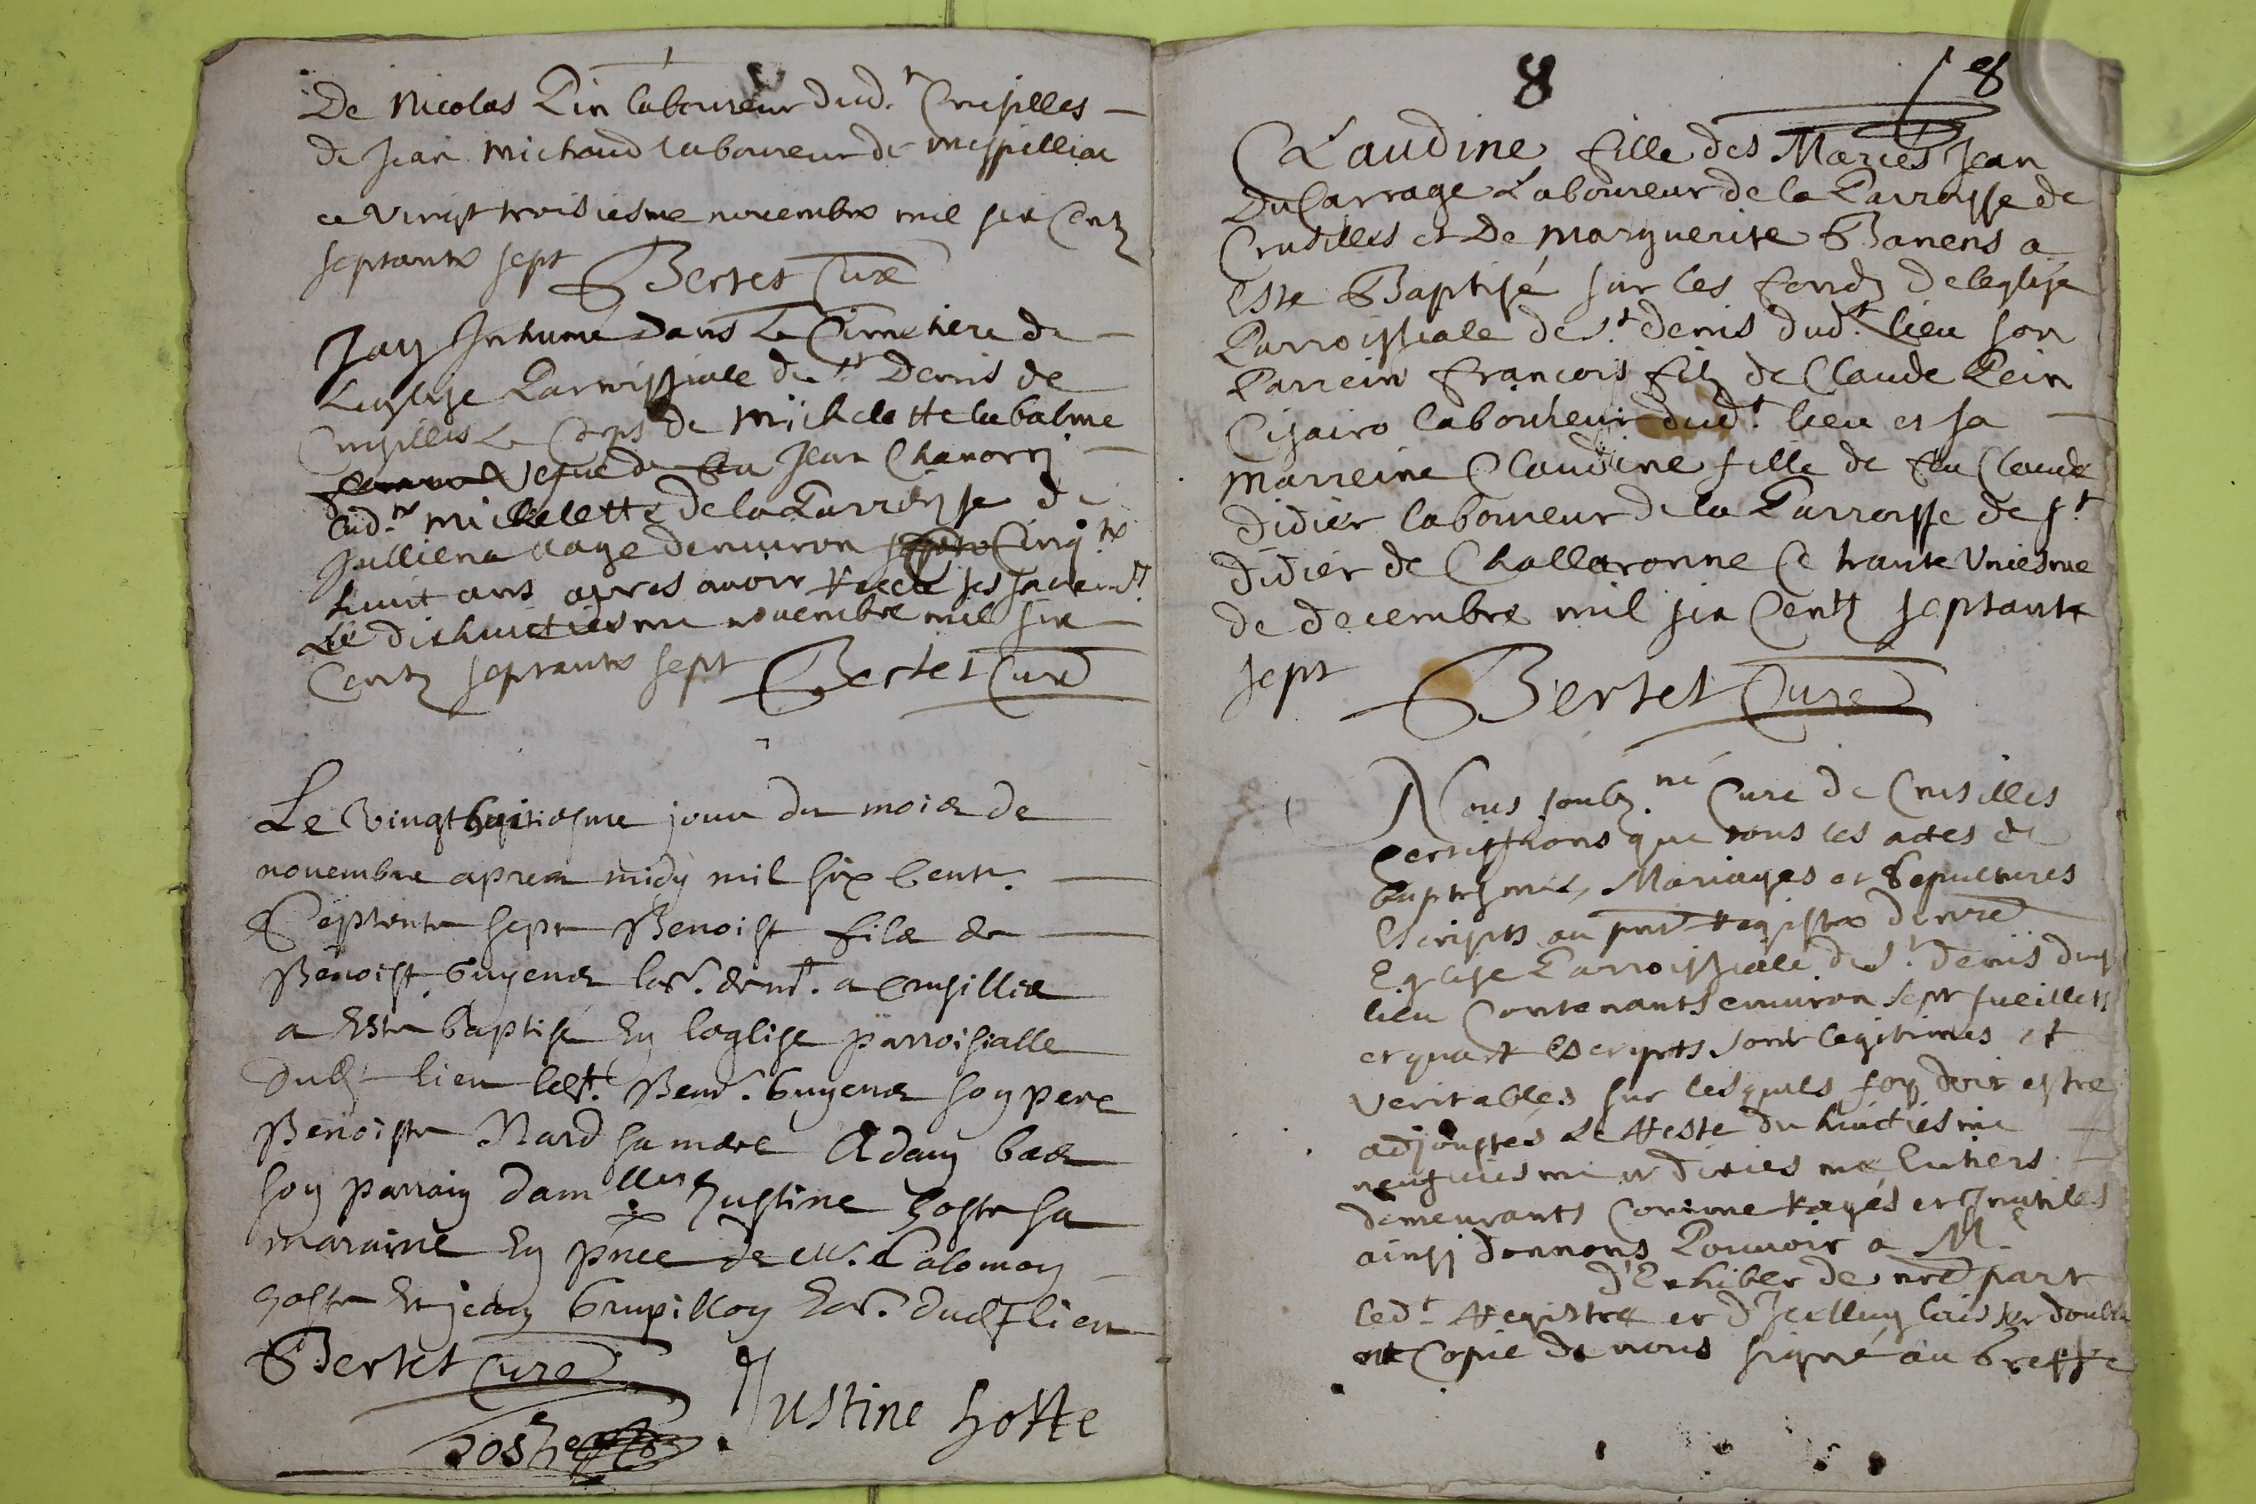 De Nicolas Pin laboureur dud.t Crusilles
de Jean Michaud laboureur de
ce vingt troisiesme novembre mil six Centz
septante sept Bertet Curé
Jay Inhume dans Le Cimetiere de
Leglise Parroissiale de St Denis de
Crusilles Le Corps de Michelette labalme
vefve de feu Jean Chanorrj
lad.te Michelette de la Parroisse de
Julliena aage denuiron Cinq.te
huit ans apres auoir receu ses sacrem.ts
Le dixhuictiesme novembre mil six
Centz septante sept Bertet Curé
Le vingthuitiesme jour du mois de
nouembre apres midy mil six Cents
Septente sept Benoist fils de
Benoist Guyenet lab.r dem.t a Crusillie
a Este baptise En leglise parroisialle
dud.t lieu led.t Ben.t Guyenet son pere
Benoiste Nard sa mere Adam
son parrain dam.lle Justine hoste sa
maraine En pnce de M.e Salomon
hoste Et jean Grupillon lab.r dud.t lieu
Bertet Curé
Justine hoste
8
8
Claudine fille des Maries Jean
DuCarrage Laboureur de la Parroisse de
Crusilles et De Marguerite Banens a
Este Baptisé sur les fondz de leglise
Parroissiale de S.t denis dud.t lieu son
Parrein francois filz de Claude Pein
laboureur dud.t lieu et sa
Marreine Claudine fille de feu Claude
didier laboureur de la Parroisse de S.t
didier de Challaronne Ce trante Vniesme
de decembre mil six Centz septante
sept Bertet Curé
Nous soubz.né Curé de Crusilles
Certiffions que tous les actes de
baptesmes, Mariages et Sepultures
Escripts au pnt Registre de nre
Eglise Parroissiale de S.t denis dud
lieu Contenants enuiron sept fueillets
et quart Escripts sont legitimes et
veritables sur lesquels foy doit estre
adjoustés Le Reste du huictiesme
neufuiesme et dixiesme Entiers
demeurants Comme rayés et Inutiles
ainsj donnons Pouuoir a M.e
d'Exhiber de nre part
led.t Registre et d'Icelluy laisser double
et Copie de nous signé au Greffe